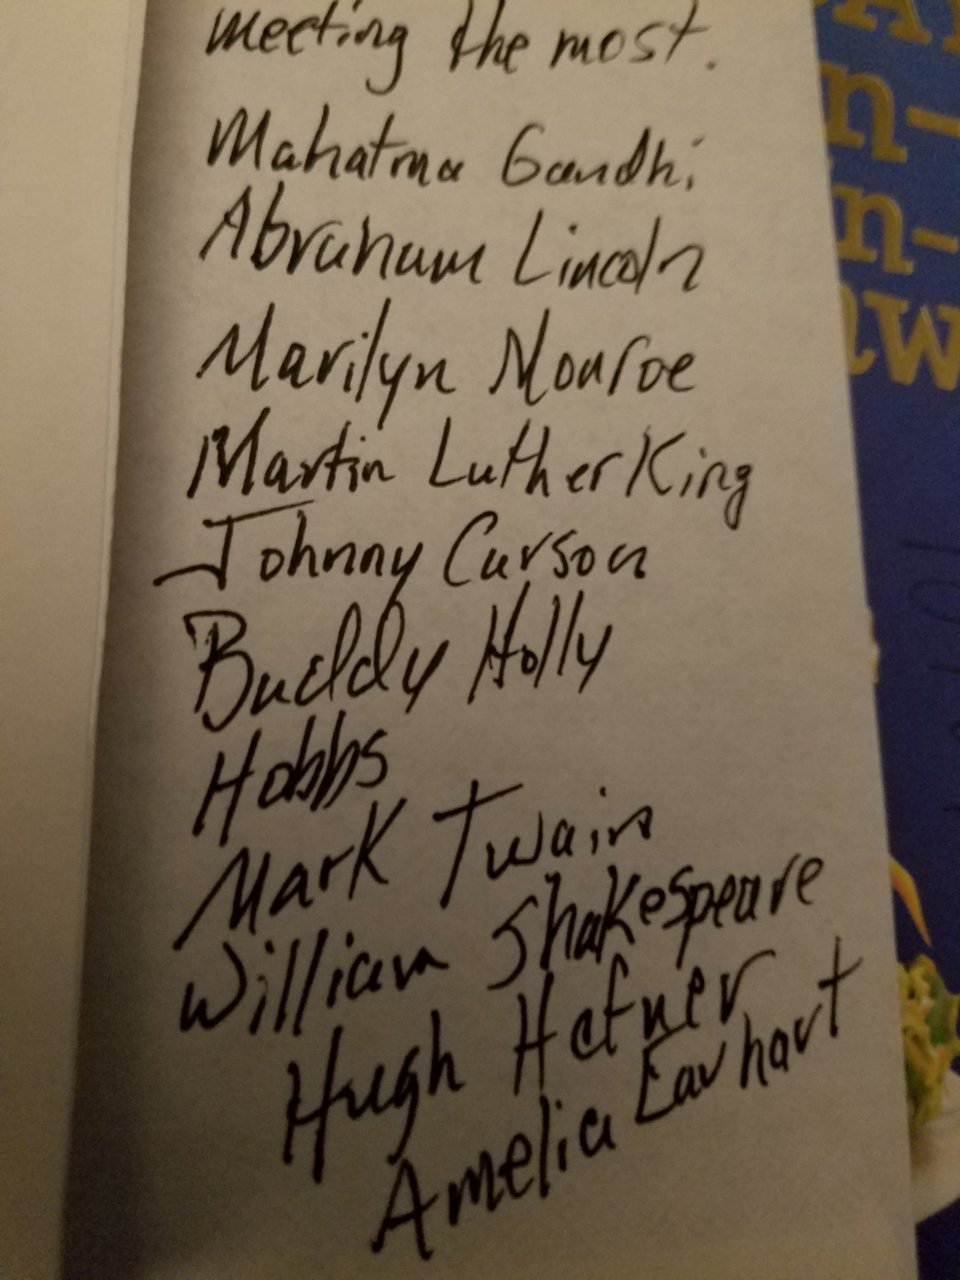 meeting the most.
Mahatma Gandhi
Abraham Lincoln
Marilyn Monroe
Martin Luther King
Johnny Curson
Buddy Holly
Hobbs
Mark Twain
William Shakespeare
Hugh Hefner
Amelia Earhart